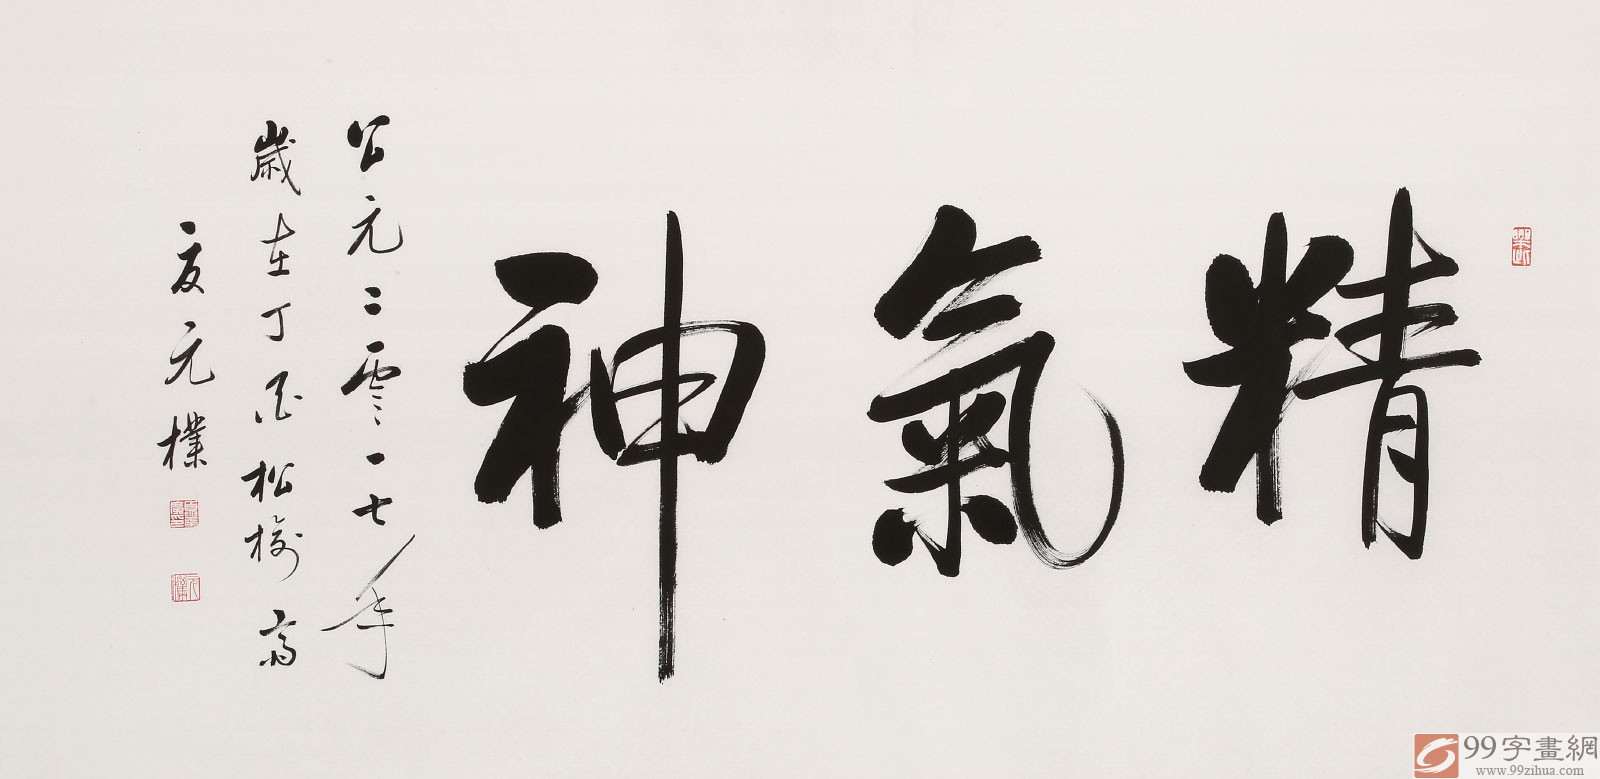 精氣神
公元二零一七年
歲在丁酉松梅斋
夏元樸
99字畫網
www.99zihua.com